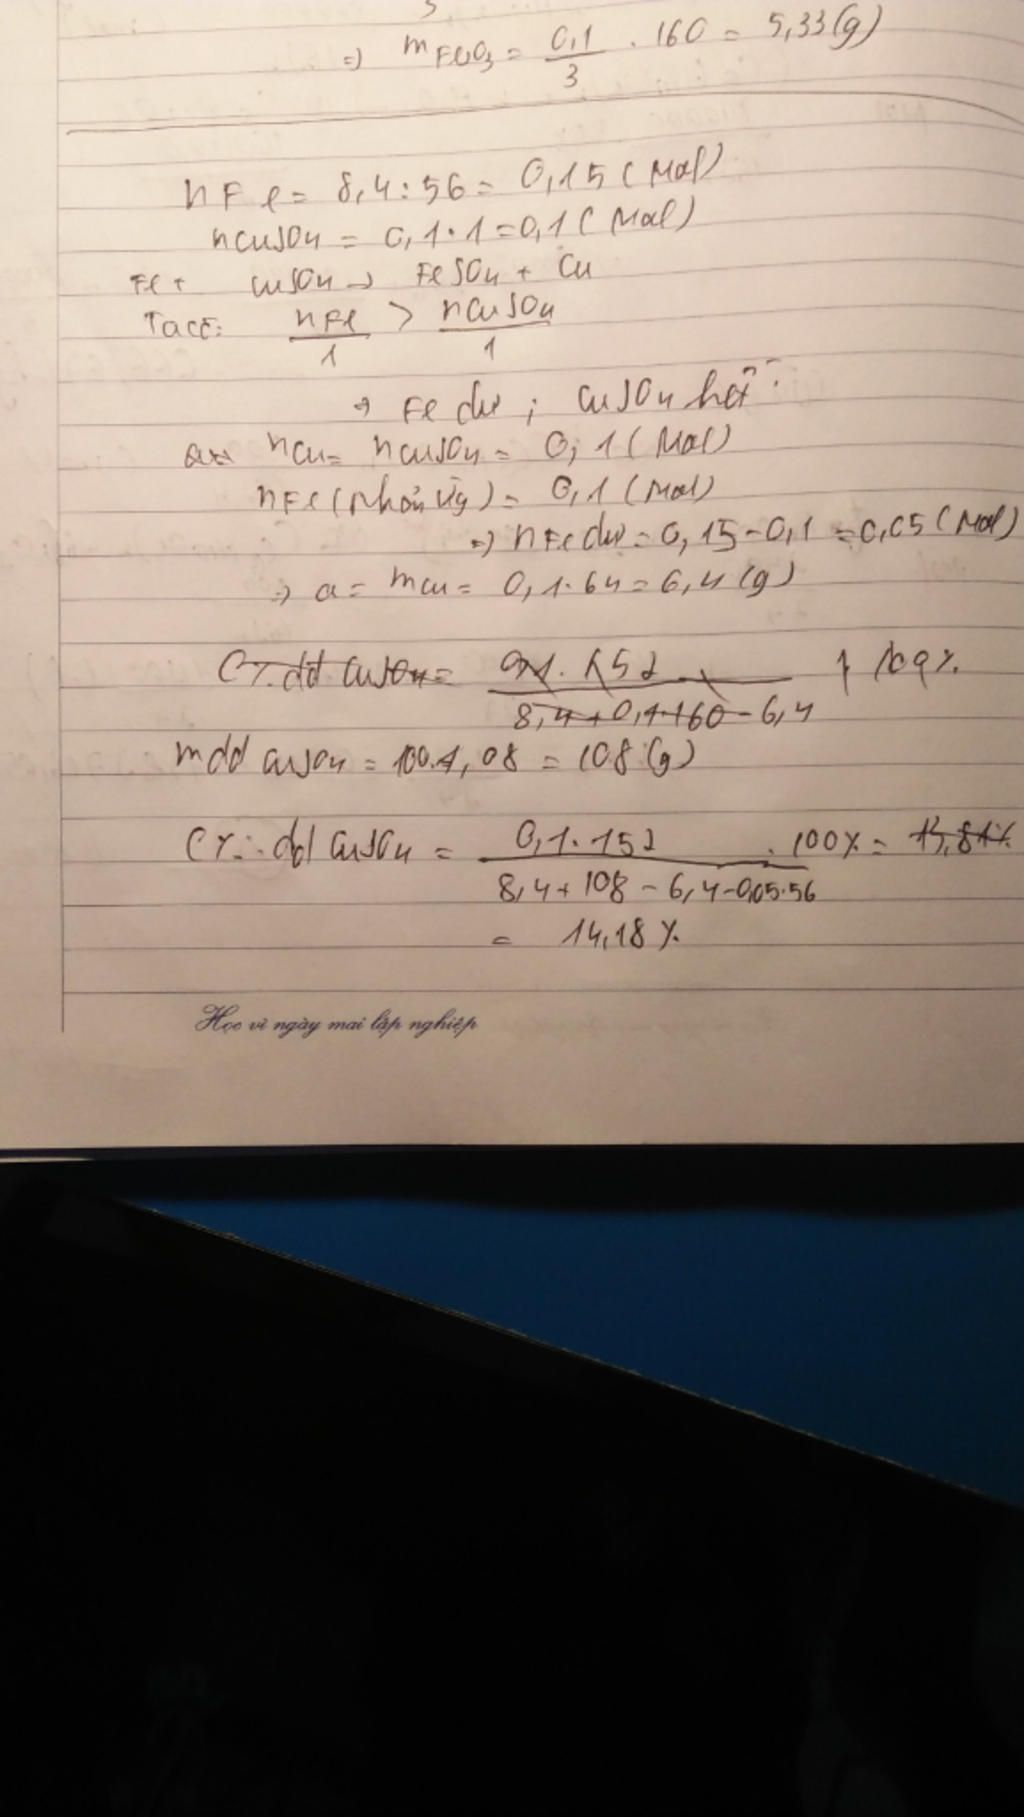 3
=) mFe2O3 = 0,1/3 . 160 = 5,33(g)
nFe = 8,4:56 = 0,15 (Mol)
nCuSO4 = 0,1.1 = 0,1 (Mol)
Fe + CuSO4 -> FeSO4 + Cu
Ta có: nFe/1 > nCuSO4/1
=> Fe dư ; CuSO4 hết
nCu = nCuSO4 = 0,1 (Mol)
nFe (phản ứng) = 0,1 (Mol)
=) nFe dư = 0,15-0,1 = 0,05 (Mol)
=) a = mCu = 0,1.64 = 6,4 (g)
C%.dd CuSO4 = 0,1.152/8,4+0,1.160-6,4
mdd CuSO4 = 100.1,08 = 108 (g)
C%. dd CuSO4 = 0,1.152/8,4+108-6,4-0,05.56 .100% = 13,81%
= 14,18%
Học vì ngày mai lập nghiệp